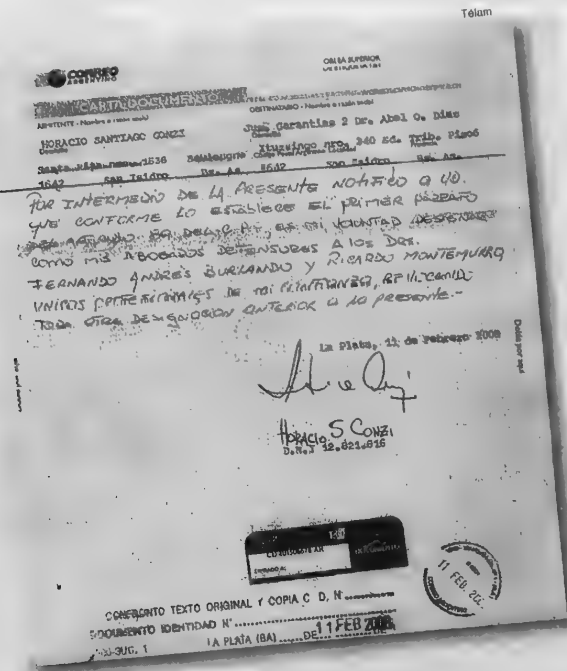 Télam
CORREO
ARGENTINO
CARTA DOCUMENTO
DESTINATARIO
HORACIO SANTIAGO CONZI
Juez Garantías 2 Dr. Abel O. Díaz
Santa Rita 1636 Boulogne
Ituzaingo nro. 340 Ed. Trib. Piso6
1642 San Isidro Bs. As.
1642 San Isidro Bs. As.
POR INTERMEDIO DE LA PRESENTE NOTIFICO A UD.
QUE CONFORME LO ESTABLECE EL PRIMER PÁRRAFO
DEL ES MI VOLUNTAD DESIGNAR
COMO MIS ABOGADOS DEFENSORES A LOS DRS.
FERNANDO ANDRES BURLANDO Y RICARDO MONTEMURRO
UNICOS PROFESIONALES DE MI CONFIANZA, REVOCANDO
TODA OTRA DESIGNACION ANTERIOR A LA PRESENTE.-
La Plata, 11 de Febrero
Doble por aquí
HORACIO S CONZI
D.N.I 12.821.816
DOCUMENTO
CONFRONTO TEXTO ORIGINAL Y COPIA C D, N°
11 FEB.
DOCUMENTO IDENTIDAD N°
LA PLATA (BA) DE 11 FEB